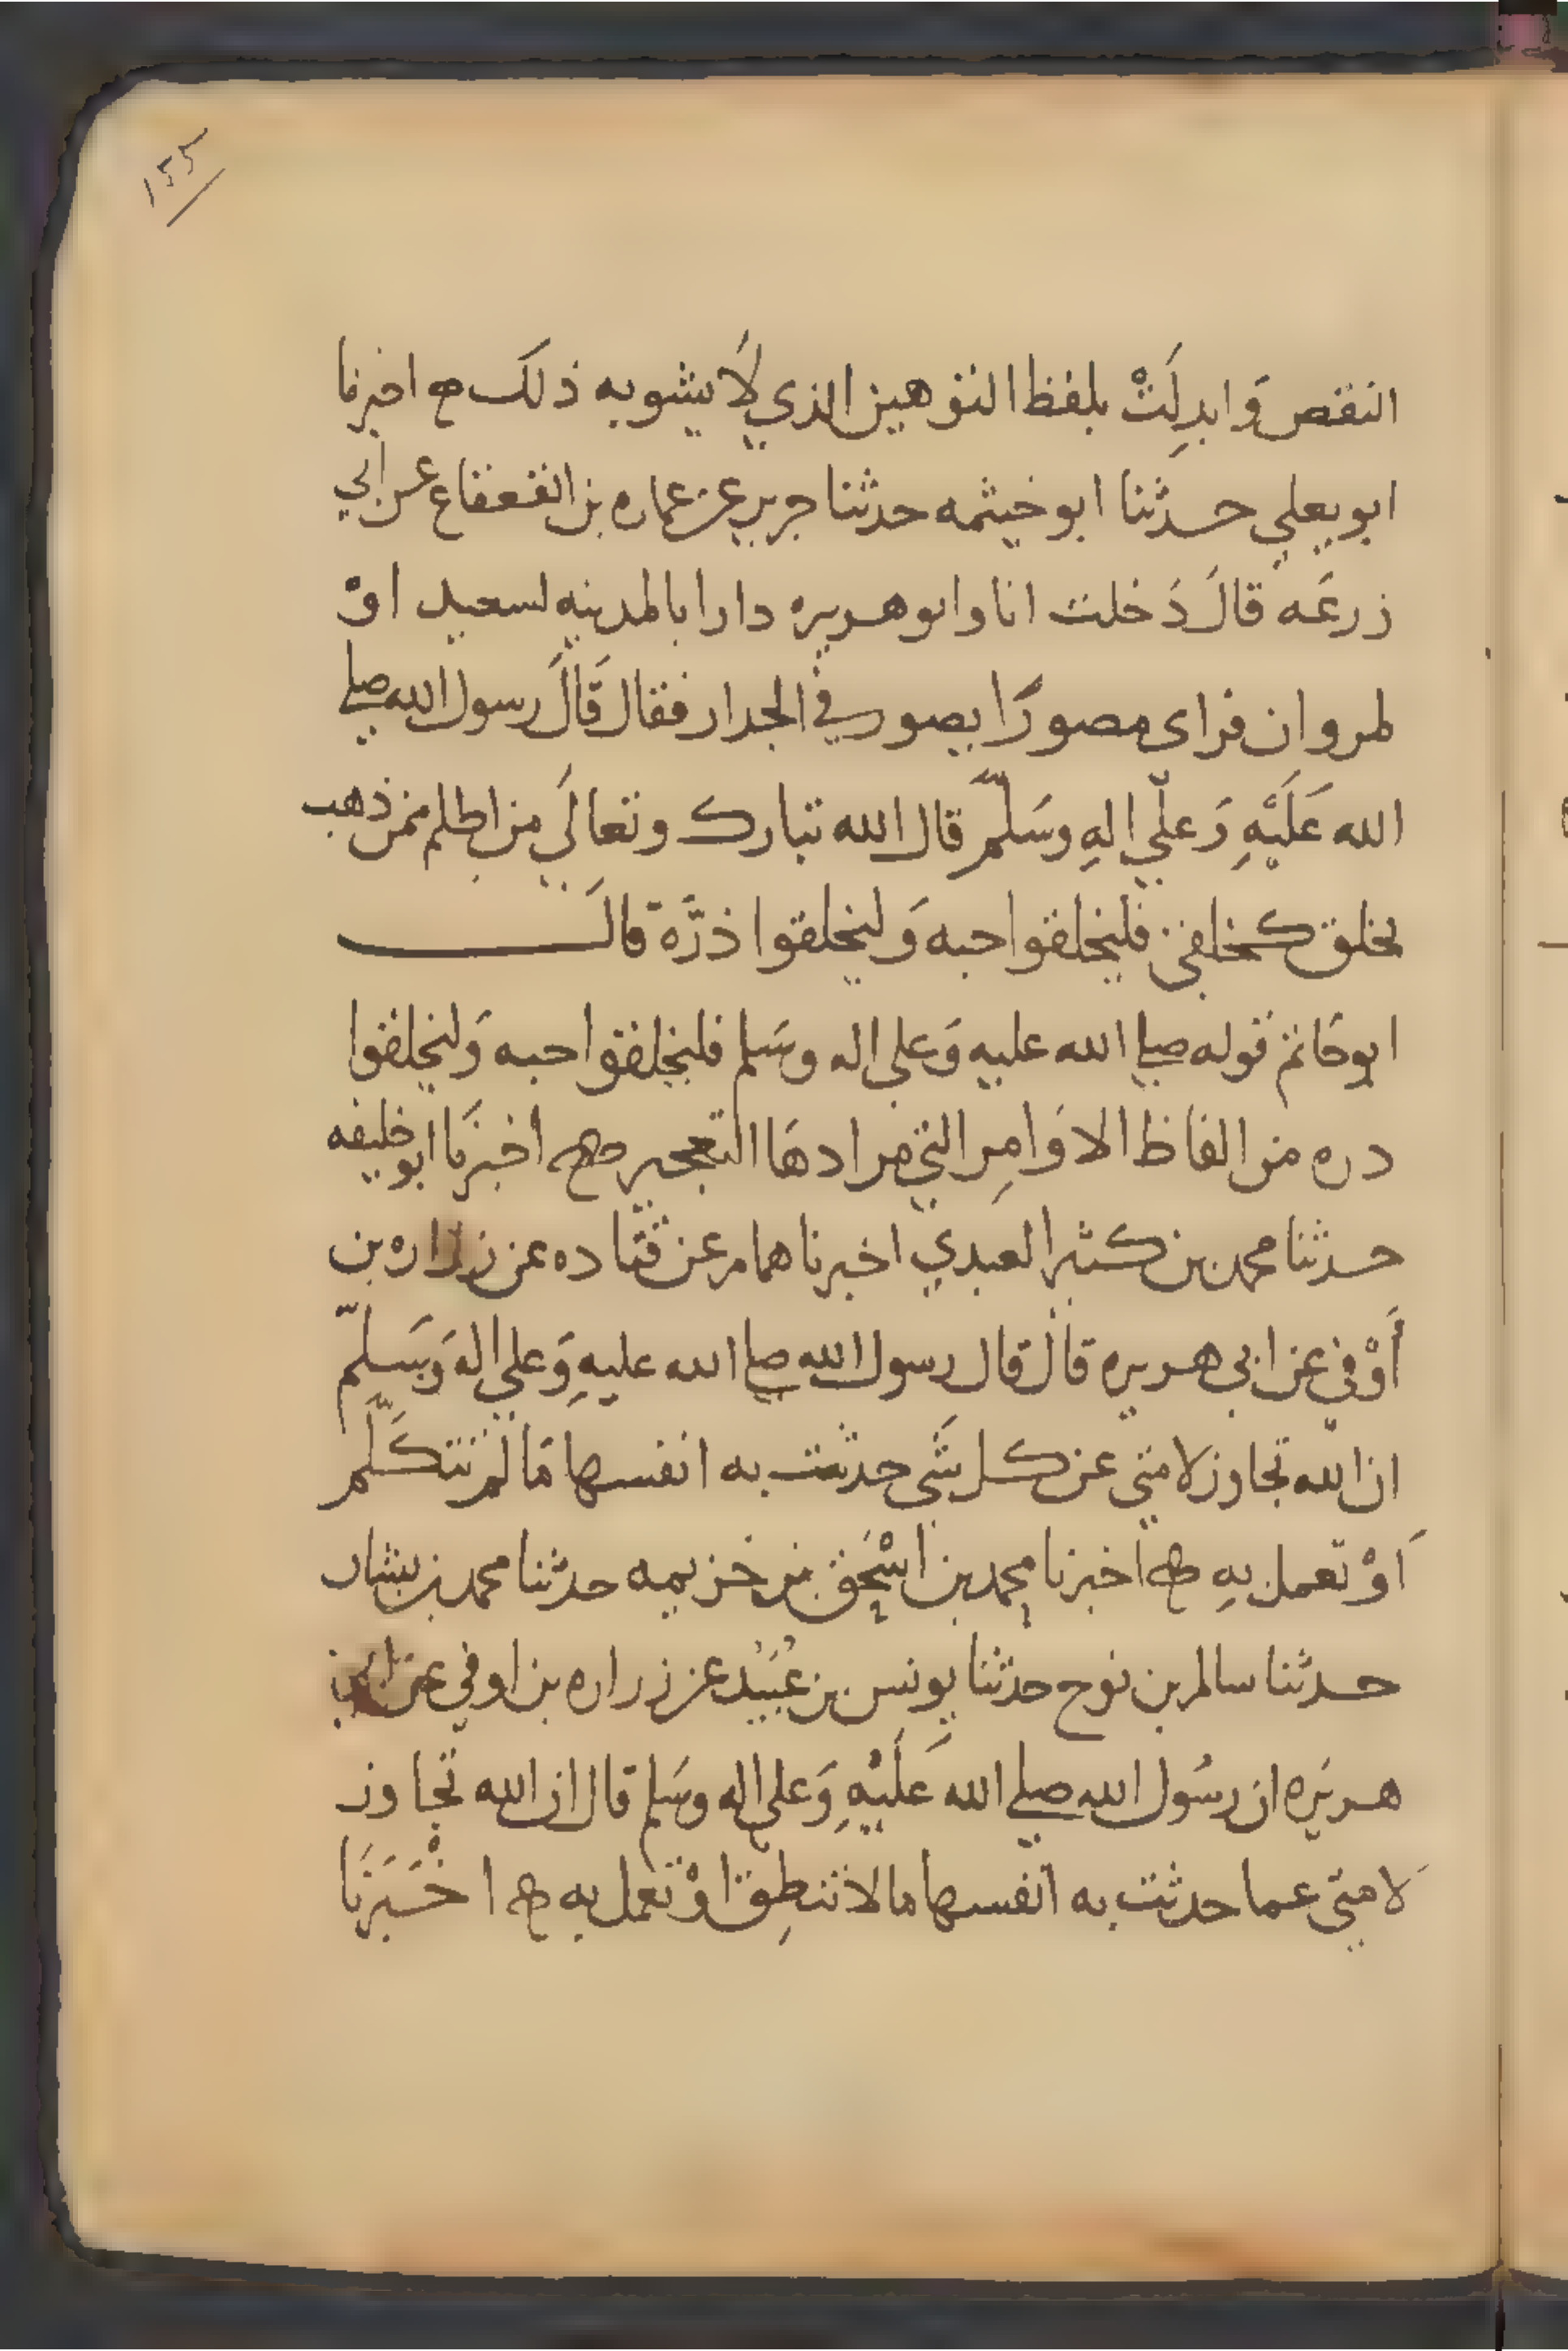 ١٥٥
النقص وَابدِلَتْ بلفظ التوهين الذي لَا يشوبه ذلك ھ اخبرنا
ابو يعلي حدثنا ابو خيثمه حدثنا جرير عن عماره بن القعقاع عن ابي
زرعَه قالَ دَخلت انا وابو هريره دارا بالمدينه لسعيد اوْ
لمروان فراى مصورًا يصور في الجدار فقال قَالَ رسول الله صلي
الله عَلَيْهِ وَعلَي الهِ وسَلّم قال الله تبارك وتعالَي من اظلم ممن ذهب
يخلق كخلقي فليخلقوا حبه وَليخلقوا ذرَّة قالَ
ابو حَاتم قوله صلي الله عليه وَعلي اله وسَلم فليخلقوا حبه وَليخلقوا
دره من الفاظ الاوَامِر التي مرادهَا التعجيز ھ اخبرَنا ابو خليفه
حدثنا محمد بن كثير العبدي اخبرنا همام عن قتاده عن زراره بن
أوْفي عن ابي هريره قال قال رسول الله صلي الله عليهِ وَعلي اله وَسَلّم
ان الله تجاوز لامتي عن كل شَي حدثت به انفسها مَا لم تتكَلّم
اَوْ تعمل بهِ ھ اخبرنا محمد بن اسْحَق بن خزيمه حدثنا محمد بن بشار
حدثنا سالم بن نوح حدثنا يونس بن عُبَيْد عن زراره بن اوفي عن ابي
هريَره ان رسُول الله صلي الله عَلَيْهِ وَعلي اله وسَلم قال ان الله تجاوز
لَامتي عما حدثت به انفسها ما لا تنطِق اوْ تعمل به ھ اخْبَرَنَا